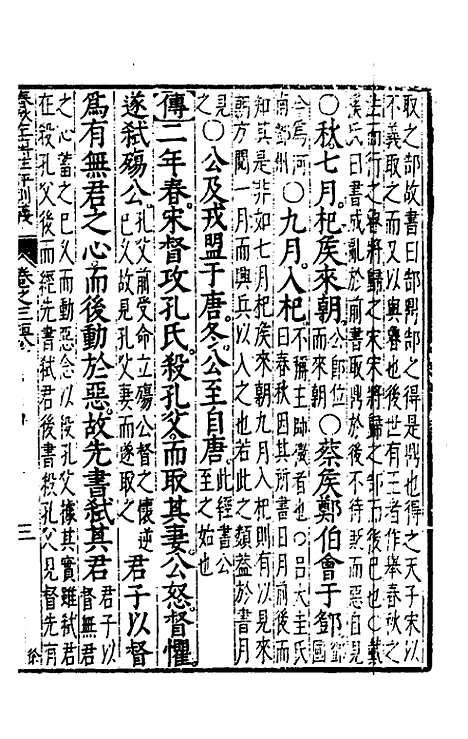 取之郜故書曰郜鼎郜之得是鼎也得之天子宋以
不義取之而又以與魯也後世有王者作舉春秋之
法而行之魯將歸之宋宋將歸之郜而後已也〇戴
溪氏曰書成亂於前書取鼎於後不待貶而惡自見
〇秋七月杞侯來朝公即位而來朝〇蔡侯鄭伯會于鄧鄧國
今為河南鄧州〇九月入杞不稱主帥微者也〇呂大圭氏曰春秋因其所書日月前後而
知其是非如七月杞侯來朝九月入杞則有以見來
朝方閱一月而興兵以入之也若此之類蓋於書月
見之〇公及戎盟于唐冬公至自唐此經書公至之始也
傳二年春宋督攻孔氏殺孔父而取其妻公怒督懼
遂弒殤公孔父前受命立殤公督之懷逆已久故因見孔父妻而遂取之君子以督
為有無君之心而後動於惡故先書弒其君君子以督無君
之心蓄之已久而動惡念以殺孔父據其實雖弒君
在殺孔父後而經先書弒君後書殺孔父見督先有
卷之三
三
徐